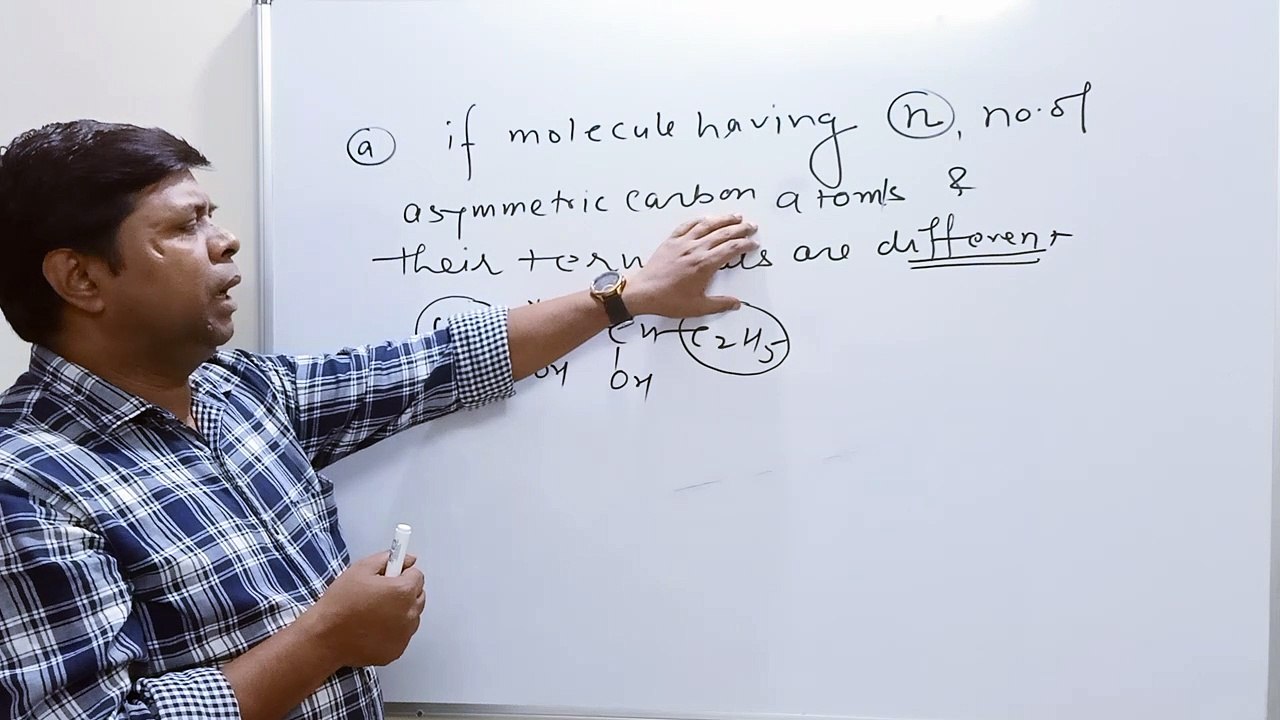 (a) if molecule having (n), no. of
asymmetric carbon atoms &
their are different
CH–C2H5
OH OH